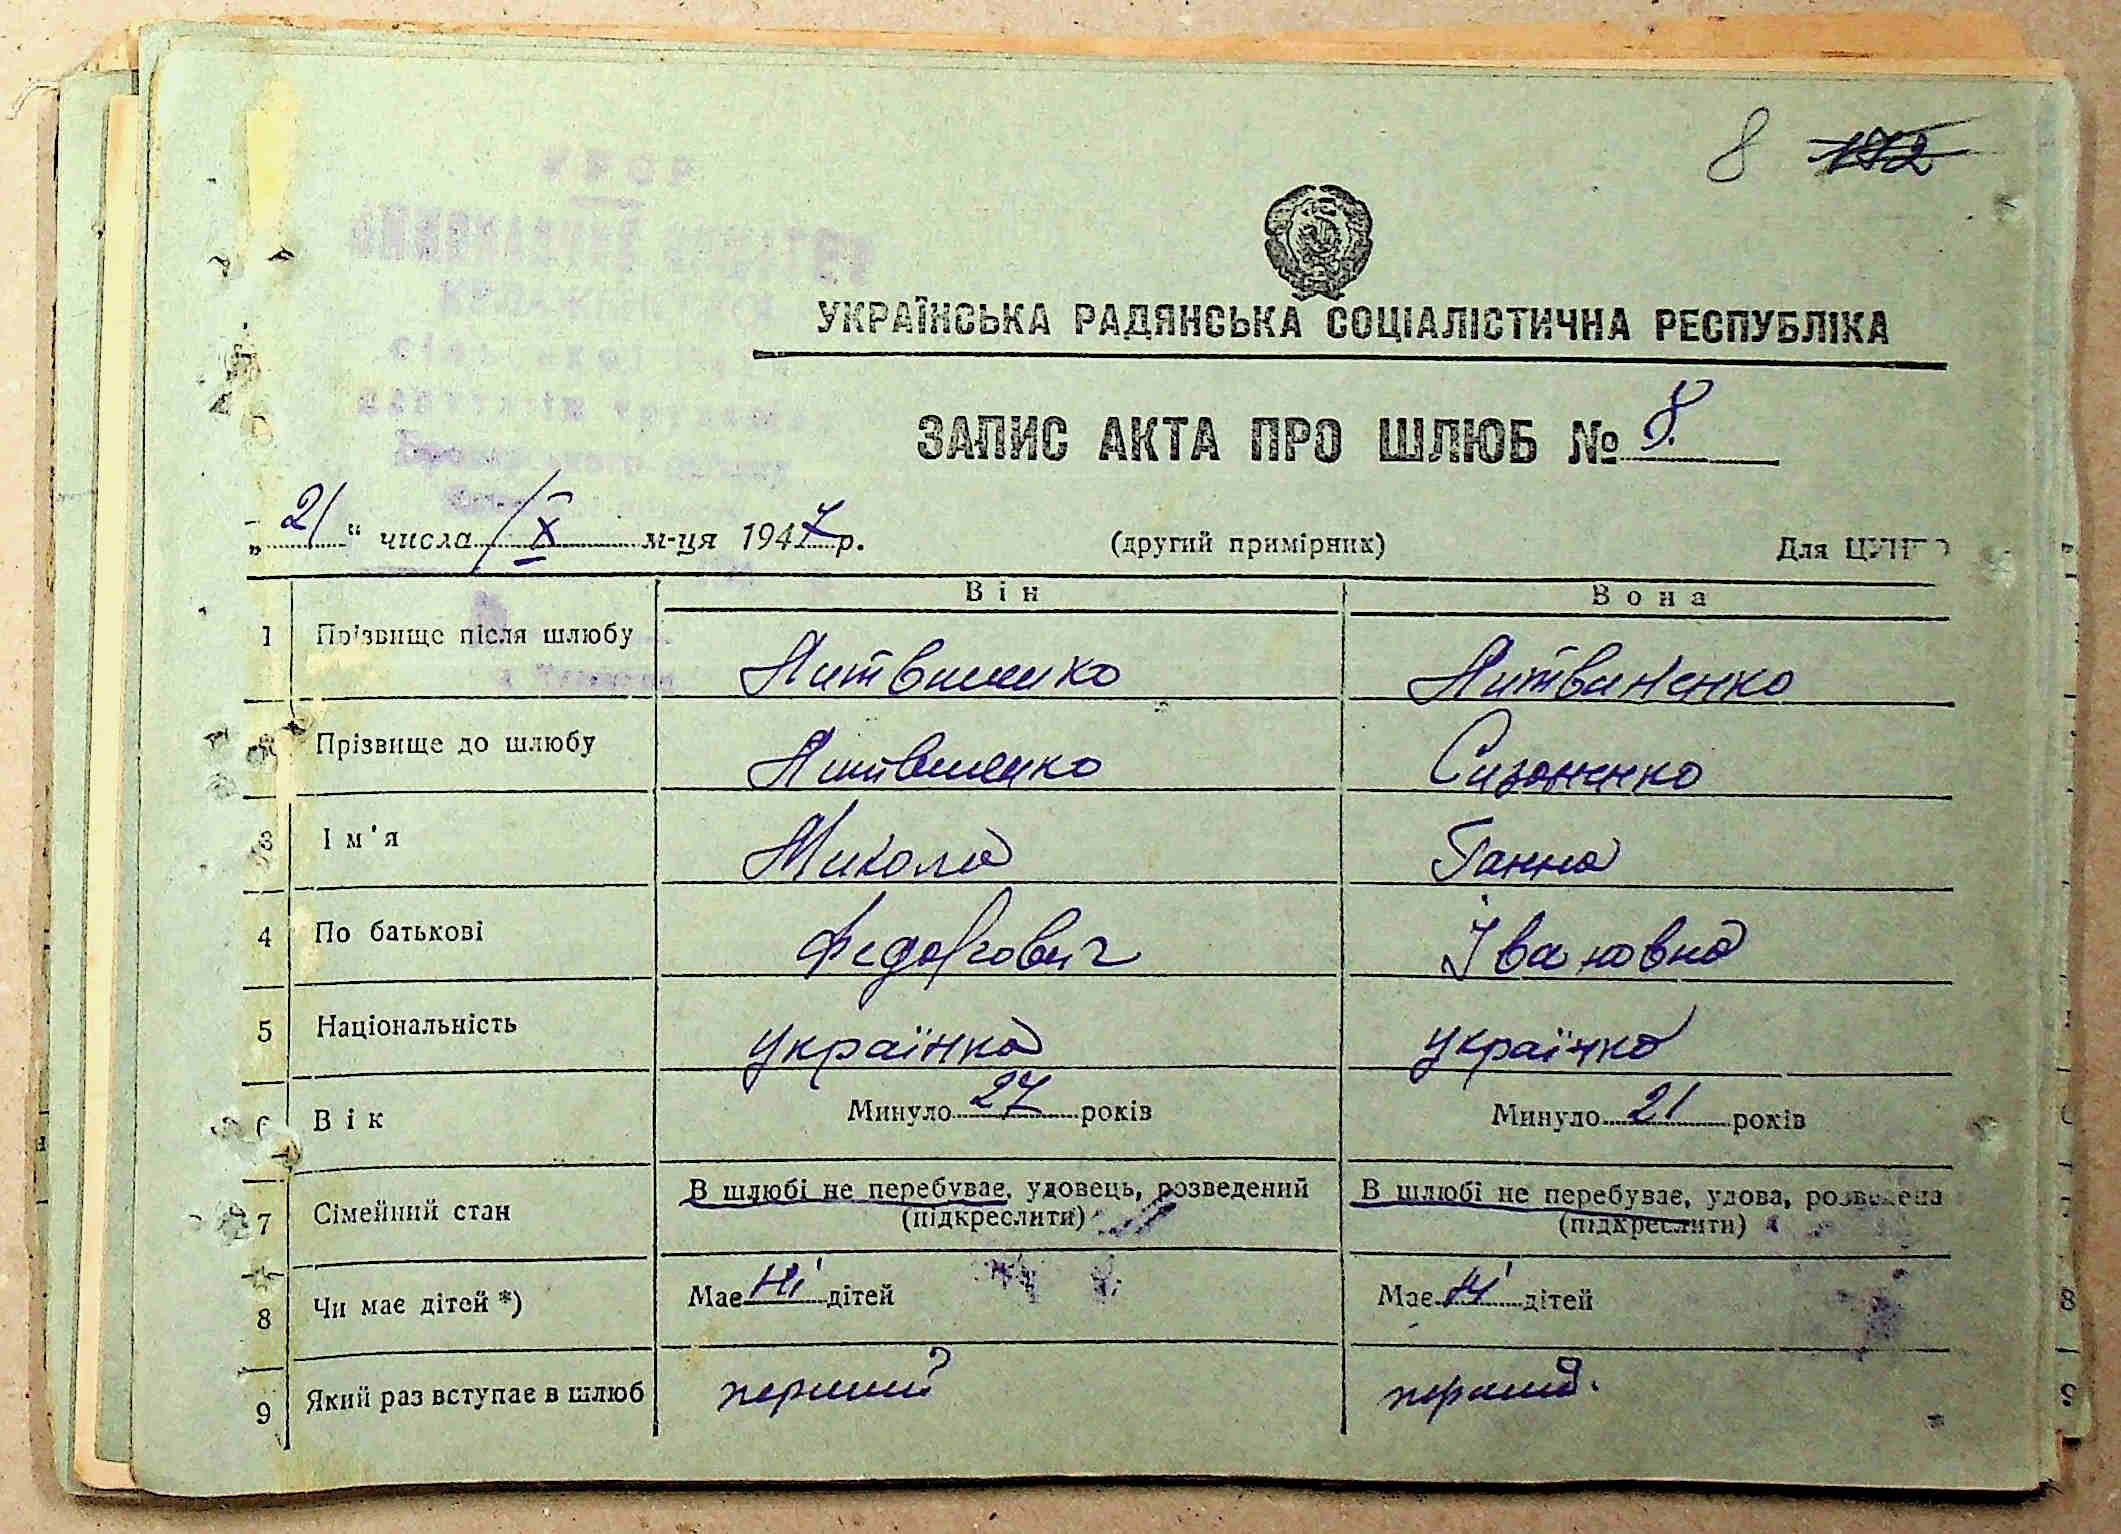 8 192
УКРАЇНСЬКА РАДЯНСЬКА СОЦІАЛІСТИЧНА РЕСПУБЛІКА
ЗАПИС АКТА ПРО ШЛЮБ № 8.
„21“ числа X м-ця 1947 р. (другий примірник) Для
Він Вона
1 Прізвище після шлюбу Литвиненко Литвиненко
2 Прізвище до шлюбу Литвиненко Сизоненко
3 Ім'я Микола Ганна
4 По батькові Федорович Івановна
5 Національність українка українка
6 Вік Минуло 27 років Минуло 21 років
7 Сімейний стан В шлюбі не перебуває, удовець, розведений В шлюбі не перебуває, удова, розведена
(підкреслити) (підкреслити)
8 Чи має дітей *) Має ні дітей Має ні дітей
9 Який раз вступає в шлюб перший перший.
8
9